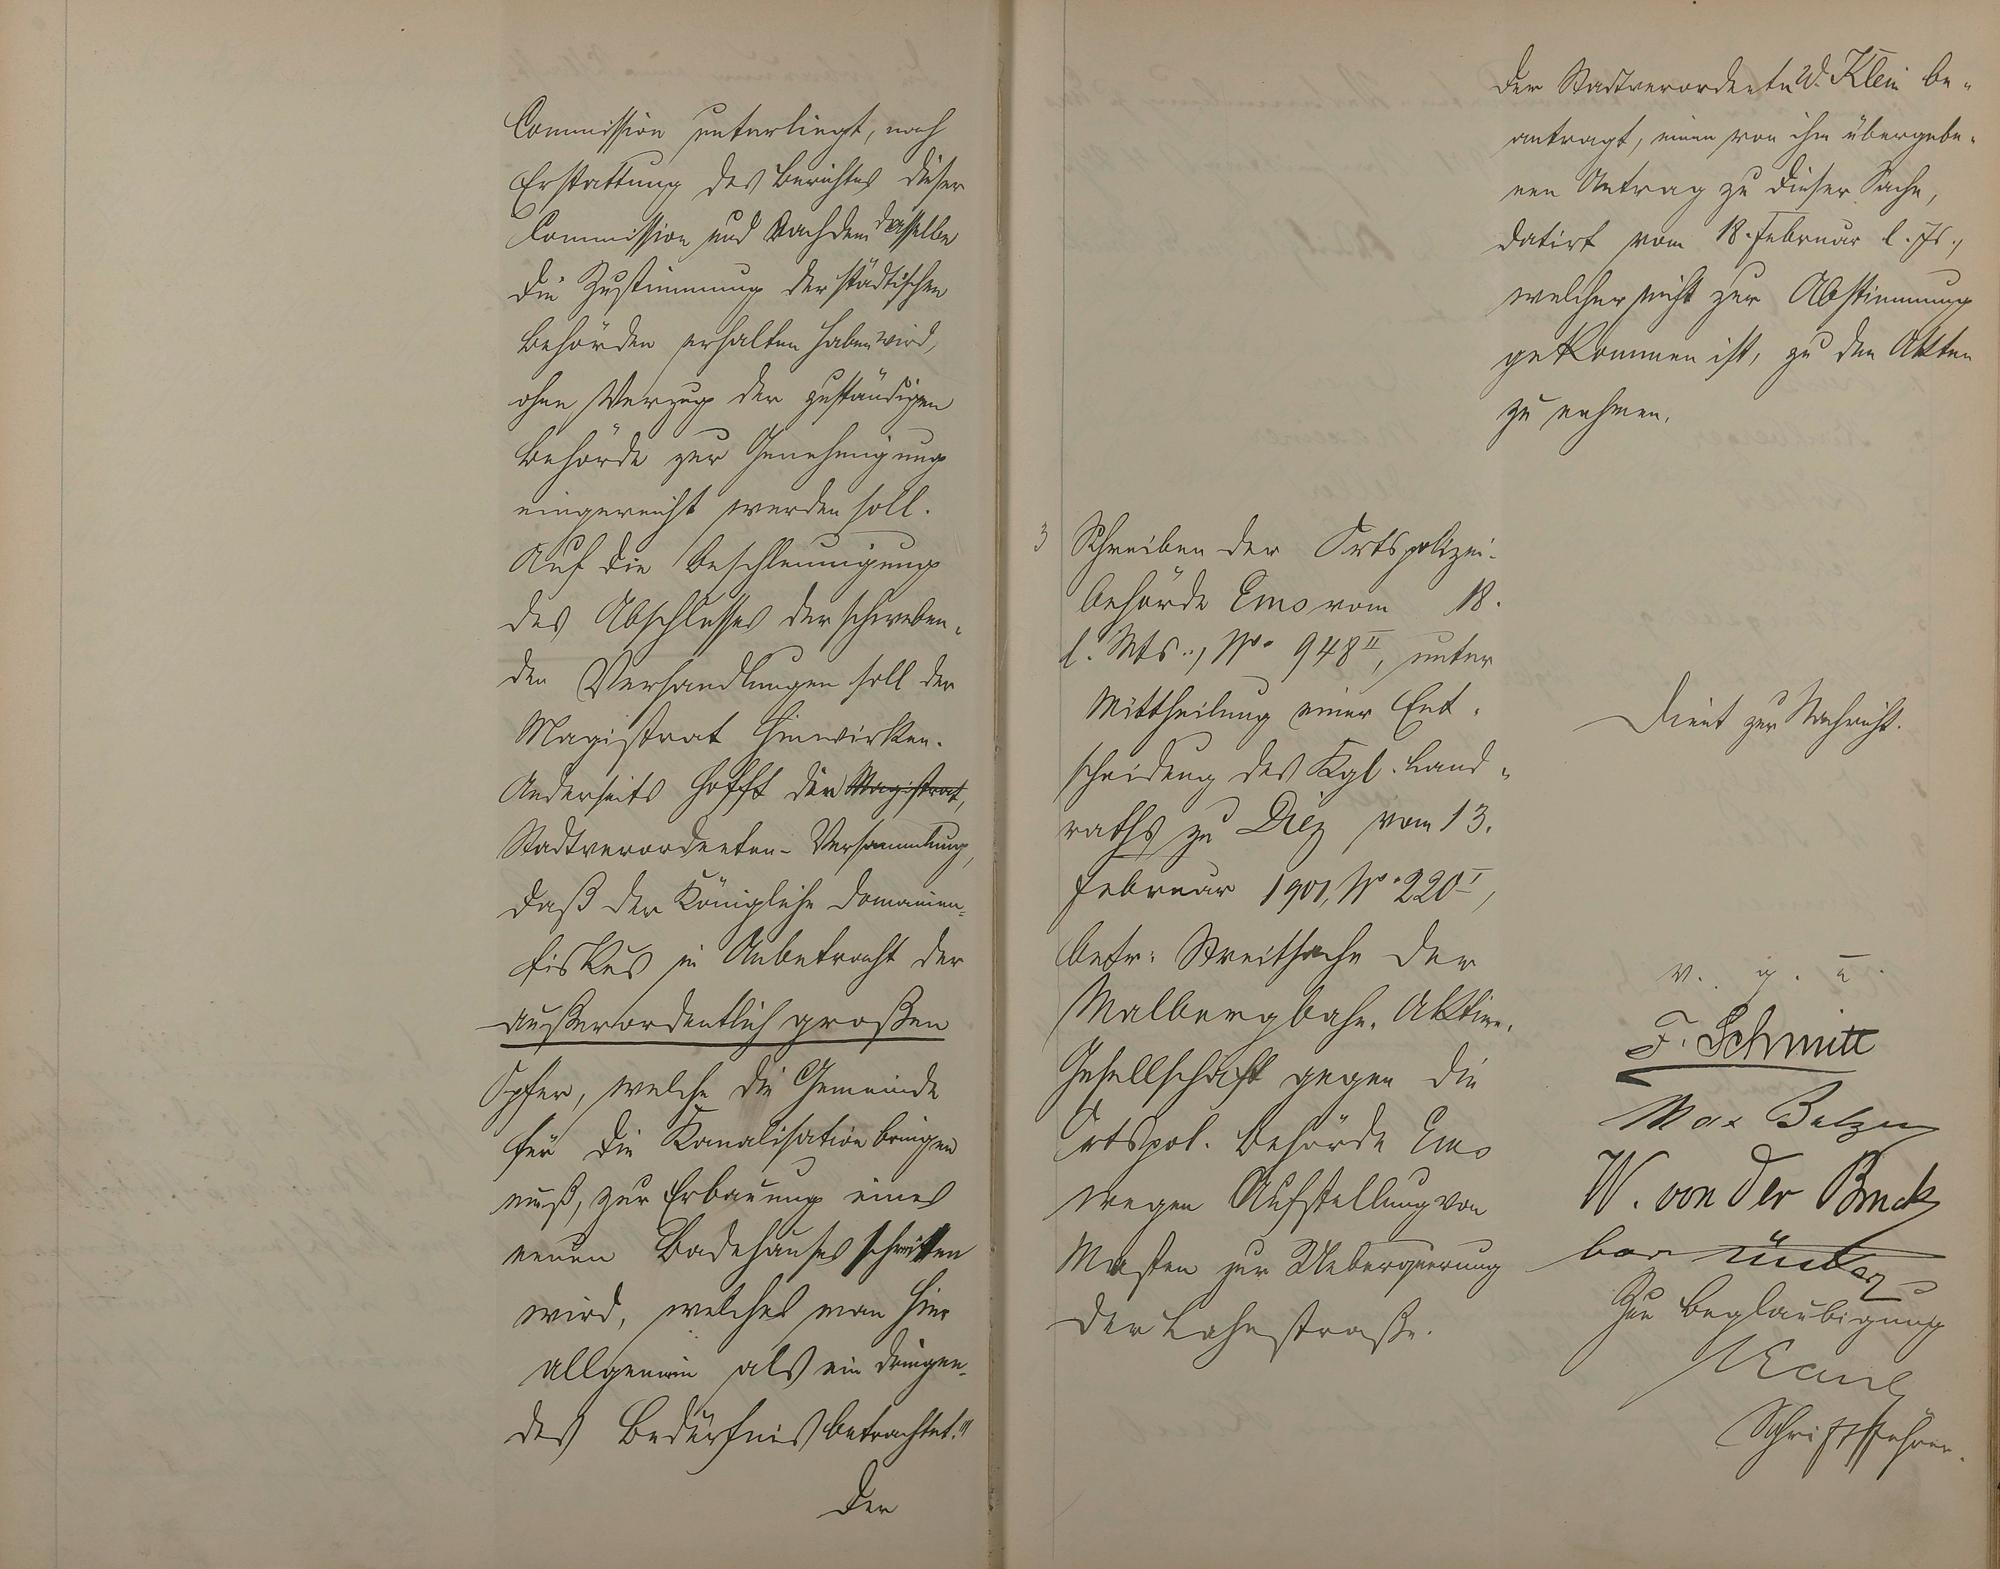 Commission unterliegt, nach
Erstattung des Berichtes dieser
Commission und Nachdem dasselbe
die Zustimmung der städtischen
Behörden erhalten haben wird,
ohne Verzug der zuständigen
Behörde zur Genehmigung
eingereicht werden soll.
Auf die Beschleunigung
des Abschlusses der schweben-
den Verhandlungen soll der
Magistrat hinwirken.
Anderseits hofft die Magistrat,
Stadtverordneten-Versammlung,
daß der Königliche Domainen-
fiskus in Anbetracht der
außerordentlich großen
Opfer, welche die Gemeinde
für die Kanalisation bringen
muß, zur Erbauung eines
neuen Badehauses schreiten
wird, welches man hier
allgemein als ein dringen-
des Bedürfnis betrachtet."
Der
Der Stadtverordnete W. Klein be-
antragt, einen von ihm übergebe-
nen Antrag zu dieser Sache,
datirt vom 18. Februar l. Js.,
welcher nicht zur Abstimmung
gekommen ist, zu den Akten
zu nehmen.
3 Schreiben der Ortspolizei-
behörde Ems vom 18.
l. Mts., No. 948 II, unter
Mittheilung einer Ent-
scheidung des Kgl. Land-
raths zu Diez vom 13.
Februar 1901, No. 220 I,
betr: Streitsache der
Malbergbahn-Aktien-
Gesellschaft gegen die
Ortspol. Behörde Ems
wegen Aufstellung von
Masten zur Ueberquerung
der Lahnstraße.
Dient zur Nachricht.
v. g. u.
F. Schmitt
Max Balzer
W. von der Bruck
Zur Beglaubigung
Kaul
Schriftführer.